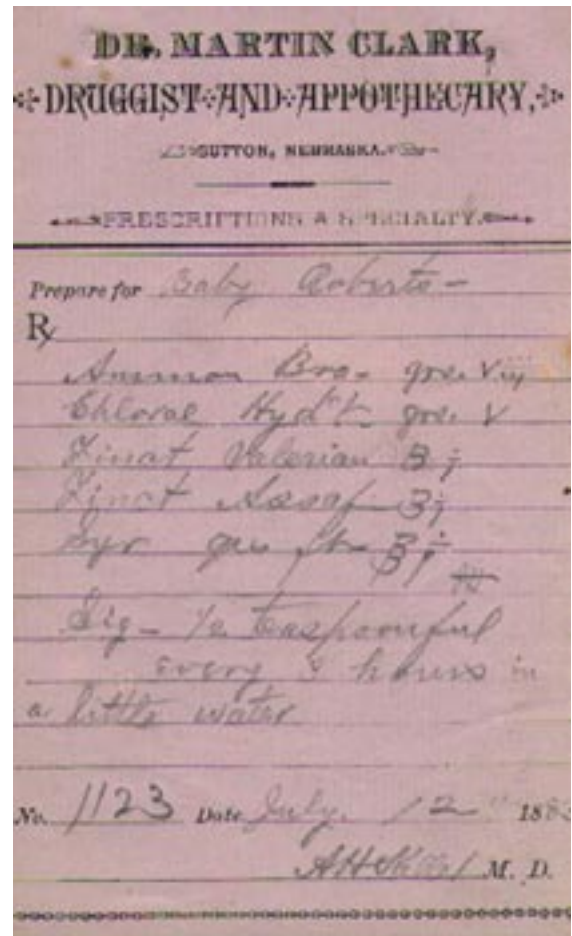 DR. MARTIN CLARK,
DRUGGIST AND APPOTHECARY,
SUTTON, NEBRASKA.
PRESCRIPTIONS A SPECIALTY.
Prepare for Baby Roberts -
℞
Ammon Bro- grs. viij
Chloral Hyd't grs. V
Tinct Valerian ʒ j
Tinct Assaf ʒ j
Syr
Sig - ½ teaspoonful
every 3 hours in
a little water
No. 1123 Date July. 12 188
M. D.